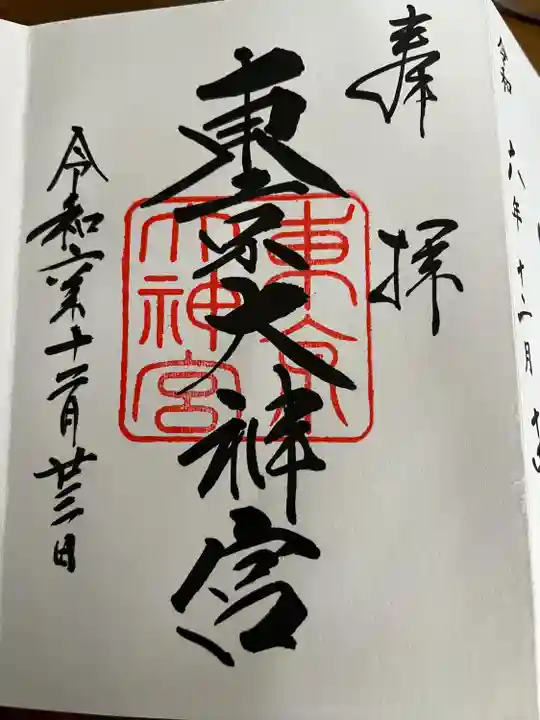 令和 六年 十二月
奉拝
東京大神宮
東京
大神宮
令和六年十二月廿三日